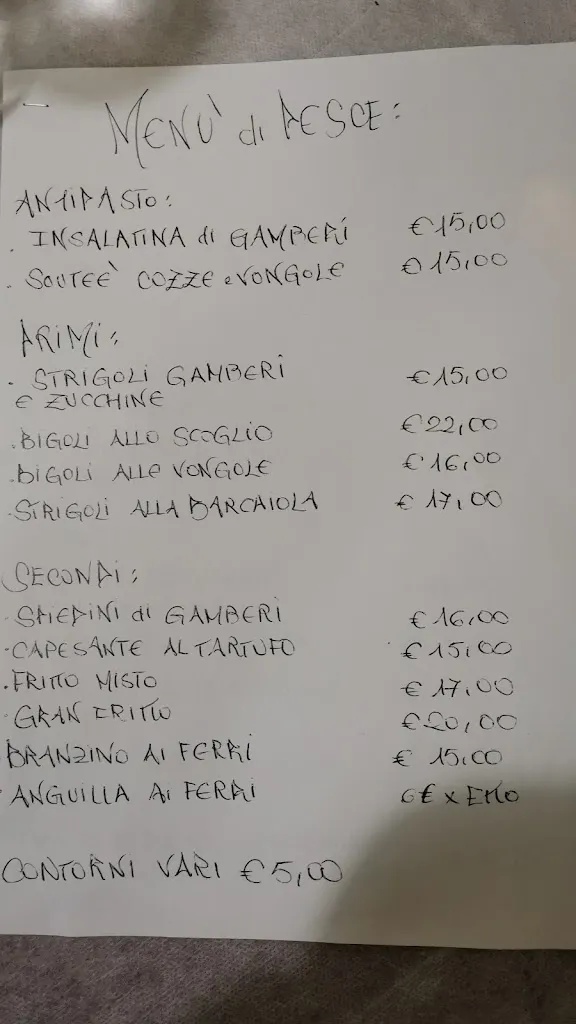 MENU' di PESCE:
ANTIPASTO:
. INSALATINA di GAMBERI € 15,00
. SOUTEE' COZZE e VONGOLE € 15,00
PRIMI:
. STRIGOLI GAMBERI € 15,00
E ZUCCHINE
. BIGOLI ALLO SCOGLIO € 22,00
. BIGOLI ALLE VONGOLE € 16,00
. STRIGOLI ALLA BARCAIOLA € 17,00
SECONDI:
. SPIEDINI di GAMBERI € 16,00
. CAPESANTE AL TARTUFO € 15,00
. FRITTO MISTO € 17,00
. GRAN FRITTO € 20,00
BRANZINO AI FERRI € 15,00
. ANGUILLA AI FERRI 6€ x ETTO
CONTORNI VARI € 5,00